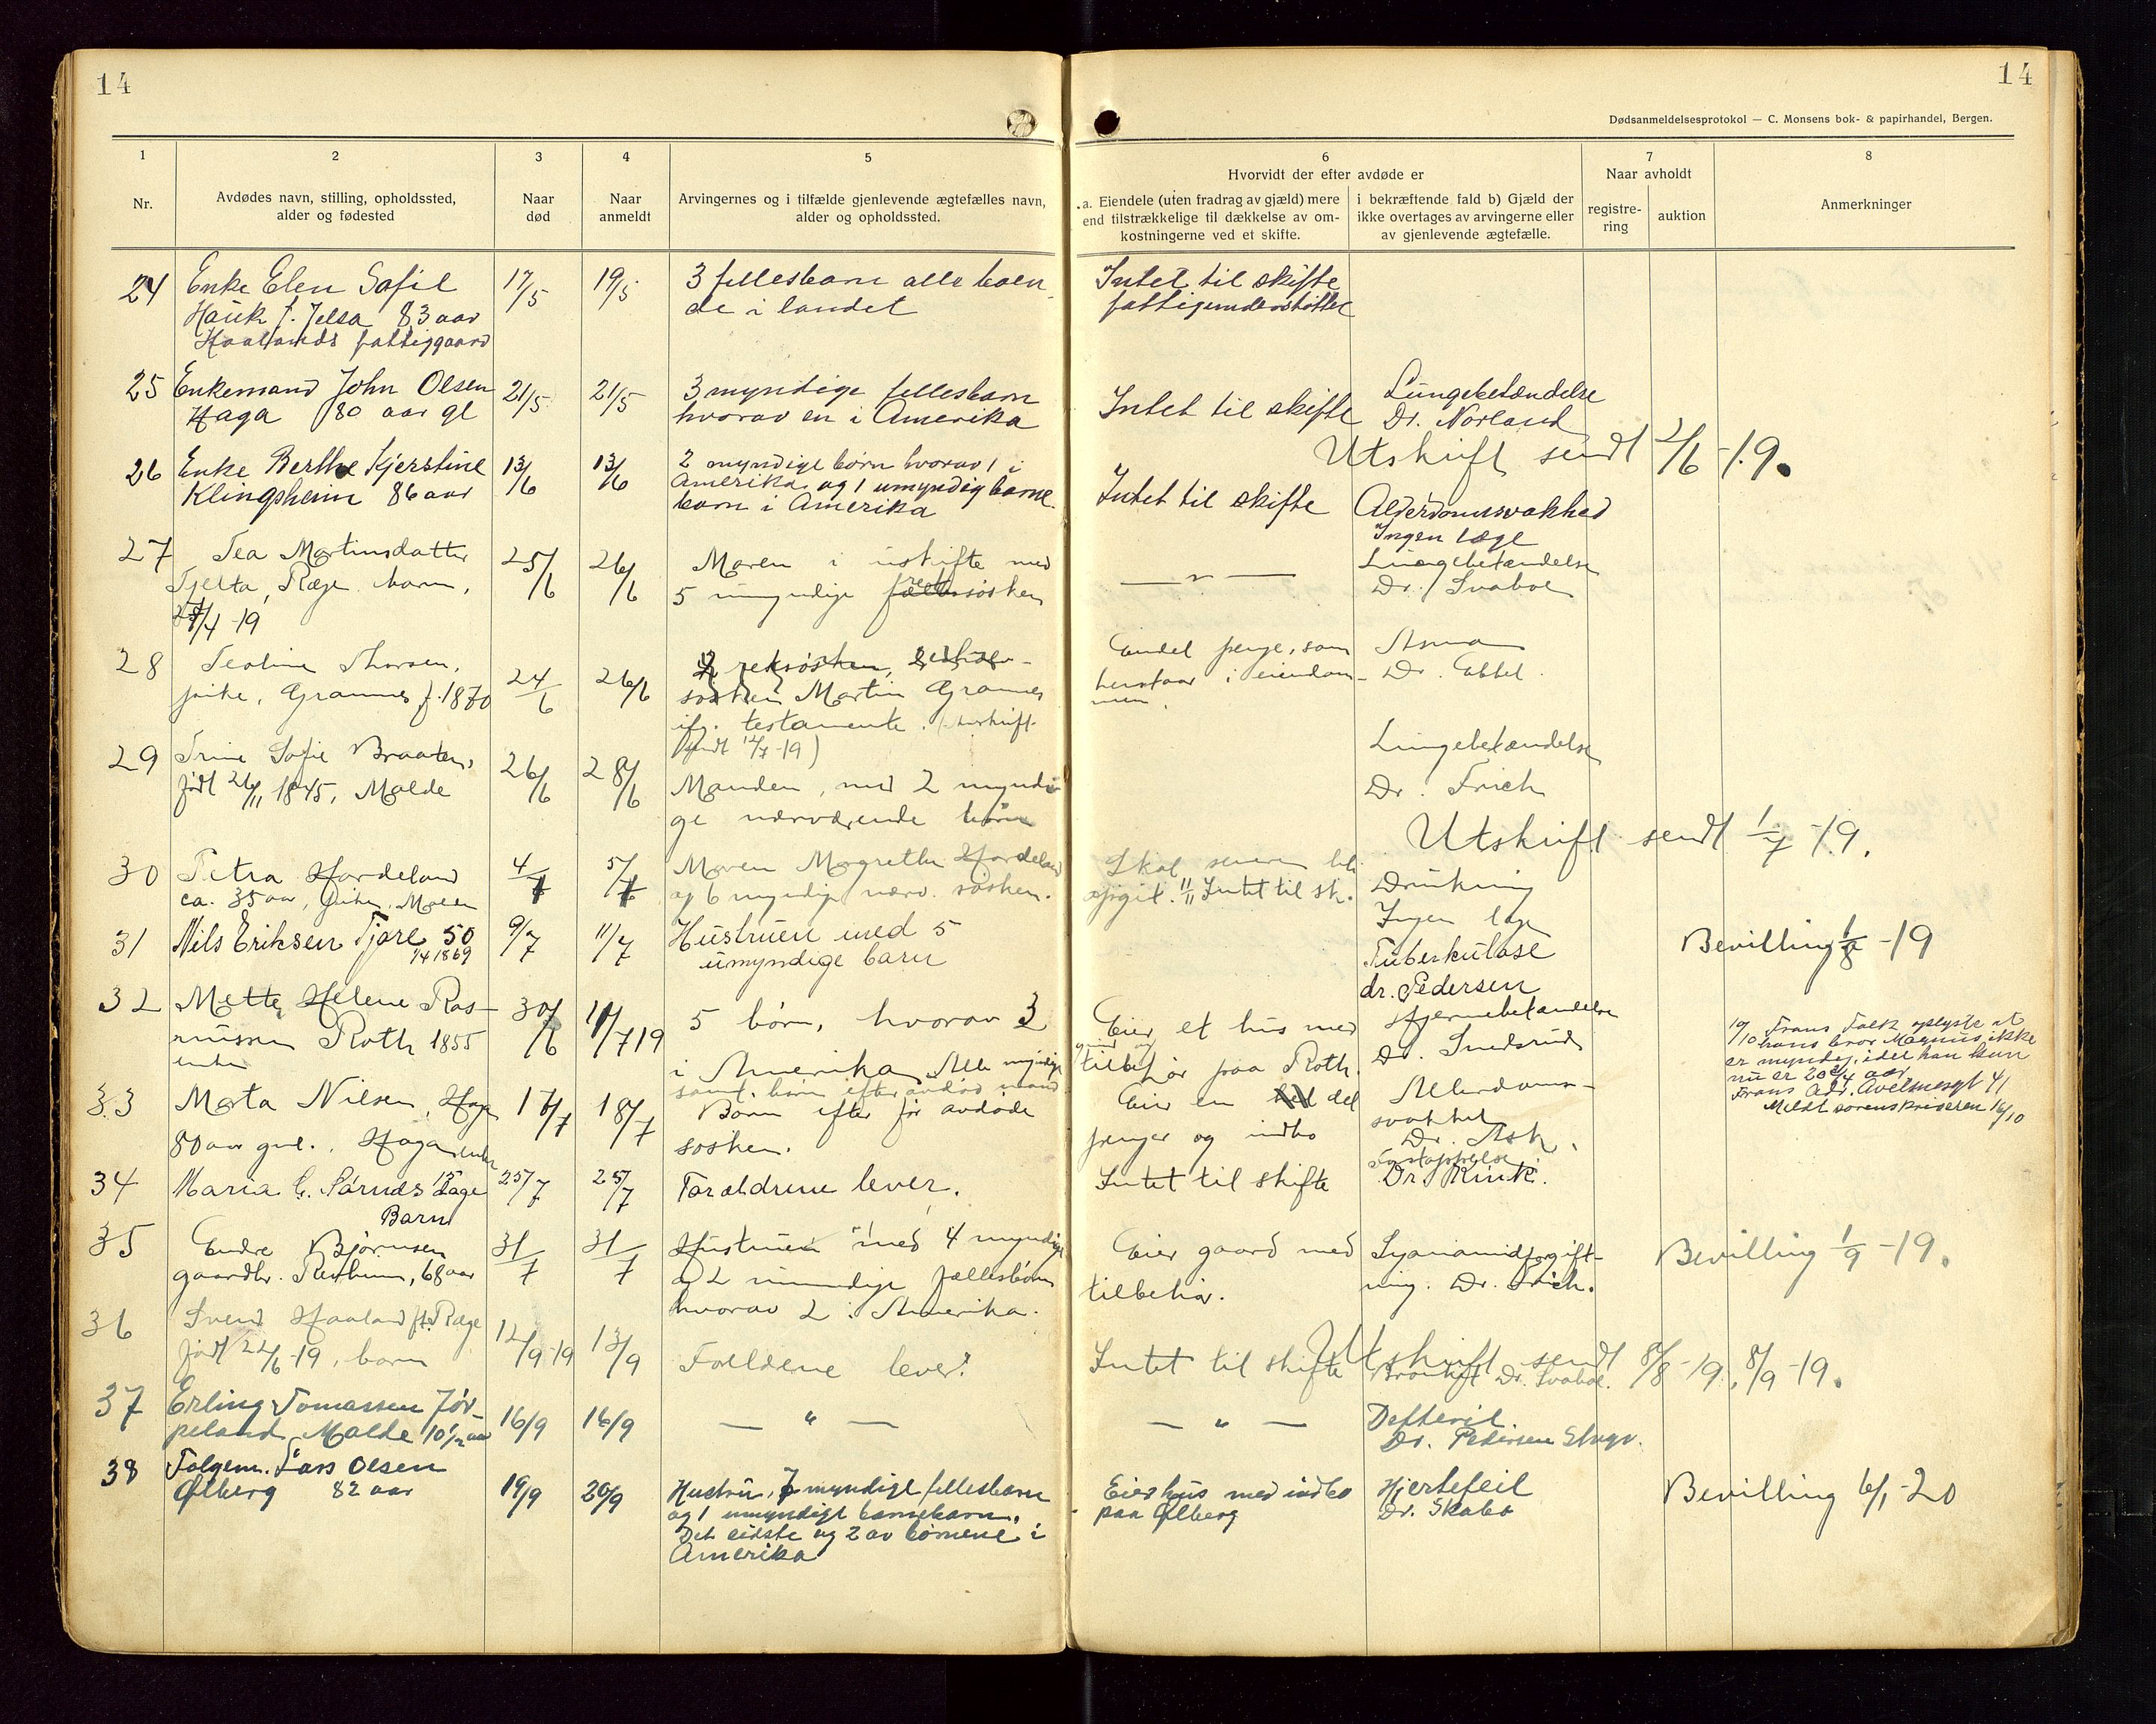 14
14
Dødsanmeldelsesprotokol — C. Monsens bok- & papirhandel, Bergen.
1
Nr.
2
Avdødes navn, stilling, opholdssted,
alder og fødested
3
Naar
død
4
Naar
anmeldt
5
Arvingernes og i tilfælde gjenlevende ægtefælles navn,
alder og opholdssted.
6
Hvorvidt der efter avdøde er
a. Eiendele (uten fradrag av gjæld) mere
end tilstrækkelige til dækkelse av om-
kostningerne ved et skifte.
i bekræftende fald b) Gjæld der
ikke overtages av arvingerne eller
av gjenlevende ægtefælle.
7
Naar avholdt
registre-
ring
auktion
8
Anmerkninger
24
Enke Elen Sofie
Hauk f. Jelsa 83 aar
Haalands fattiggaard
17/5
19/5
3 fellesbarn alle boen-
de i landet
Intet til skifte
fattigunderstøttet
25
Enkemand John Olsen
Haga 80 aar gl
21/5
21/5
3 myndige fellesbarn
hvorav en i Amerika
Intet til skifte
Lungebetændelse
Dr. Norland
Utskrift sendt 2/6 -19.
26
Enke Berthe Kjerstine
Klingsheim 86 aar
13/6
13/6
2 myndige børn hvorav 1 i
Amerika og 1 umyndig barne
barn i Amerika
Intet til skifte
Alderdomssvakhed
Ingen læge
27
Tea Martinsdatter
Tjelta, Ræge barn,
/4 -19
25/6
26/6
Moren i uskifte med
5 umyndige søsken
— " —
Lungebetændelse
Dr. Svaboe
28
Teoline Thorsen,
pike, Grannes f. 1870
24/6
26/6
søsken Martin Grannes
ifg. testamente. (utskrift
sendt -19)
Endel penge, som
henstaar i eiendom-
men.
Asma
Dr. Ebbel.
29
Trine Sofie Braaten,
født 26/11 1845, Malde
26/6
28/6
Manden, med 2 myndi
ge nærværende børn
Lungebetændelse
Dr. Frich
Utskrift sendt 1/7 -19.
30
Petra Hordeland
ca. 35 aar, pike, Malde
4/7
5/7
Moren Magrethe Hordeland
og 6 myndige nærv. søsken.
Skal senere bli
opgit. 11/11 Intet til sk.
Drukning
Ingen læge
31
Nils Eriksen Tjore 50
1/4 1869
9/7
11/7
Hustruen med 5
umyndige barn
Tuberkulose
dr. Pedersen
Bevilling 1/8 -19
32
Mette Helene Ras-
mussen Roth 1855
enke
30/6
11/7 19
5 børn, hvorav 3
i Amerika. Alle myndige
samt børn efter avdød mand
Eier et hus med
tilbehør paa Roth.
Hjernebetændelse
Dr. Snedsrud
19/10 Frans Falk oplyste at
hans bror Magnus ikke
er myndig, idet han kun
nu er 20 3/4 aar
Frans Adr. Avelmesgt 41
Meldt sorenskriveren 16/10
33
Marta Nilsen, Haga
80 aar gml. Haga enke
17/7
18/7
Børn efter før avdøde
søsken.
Eier en del
penger og indbo
Alderdoms-
svakhet
Dr. Ask.
34
Maria C. Sørnes 15 dage
Barn
25/7
25/7
Forældrene lever.
Intet til skifte
Forstoppelse
Dr. Kinck.
35
Endre Bjørnsen
gaardbr. Reitheim, 68 aar
31/7
31/7
Hustruen med 4 myndige
og 2 umyndige fællesbørn
hvorav 2 i Amerika.
Eier gaard med
tilbehør.
Cyanamidforgift-
ning. Dr. Frich.
Bevilling 1/9 -19.
Utskrift sendt 8/8 -19, 8/9 -19.
36
Svend Haaland ft. Ræge
født 22/6 -19, barn
12/9 -19
13/9
Foreldrene lever.
Intet til skifte
Bronkit Dr. Svaboe.
37
Erling Tomassen Jør-
peland Malde 10 1/2 aar
16/9
16/9
— " —
— " —
Defterit.
Dr. Pedersen Stvgr.
38
Folgem. Lars Olsen
Ølberg 82 aar
19/9
20/9
Hustru, 7 myndige fellesbarn
og 1 umyndigt barnebarn.
Det sidste og 2 av børnene i
Amerika
Eier hus med indbo
paa Ølberg
Hjertefeil
Dr. Skabo
Bevilling 6/1 -20